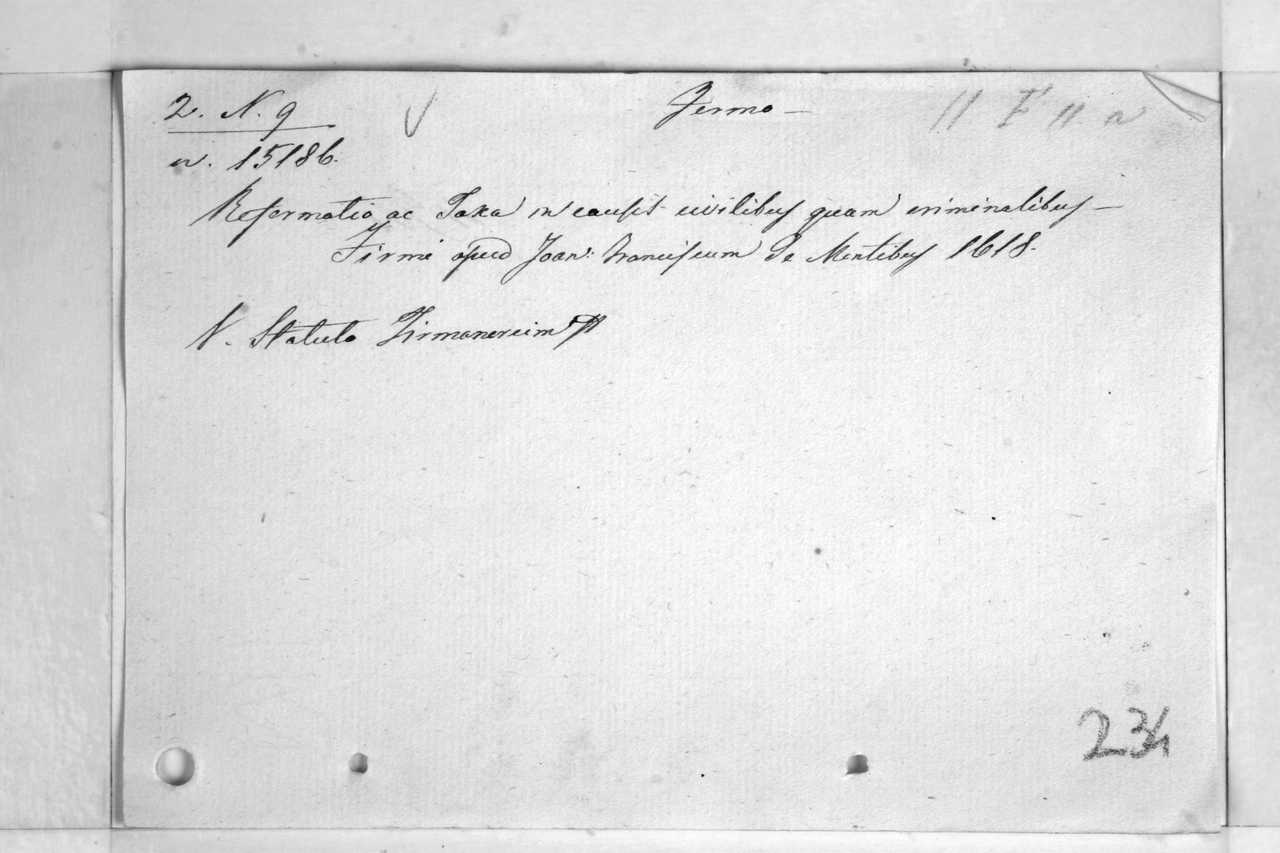 2. N. 9 Fermo –
n. 15186.
Reformatio ac Taxa in causis civilibus quam criminalibus –
Firmi apud Joan: Franciscum De Montibus 1618.
V. Statuta Firmanorum
234